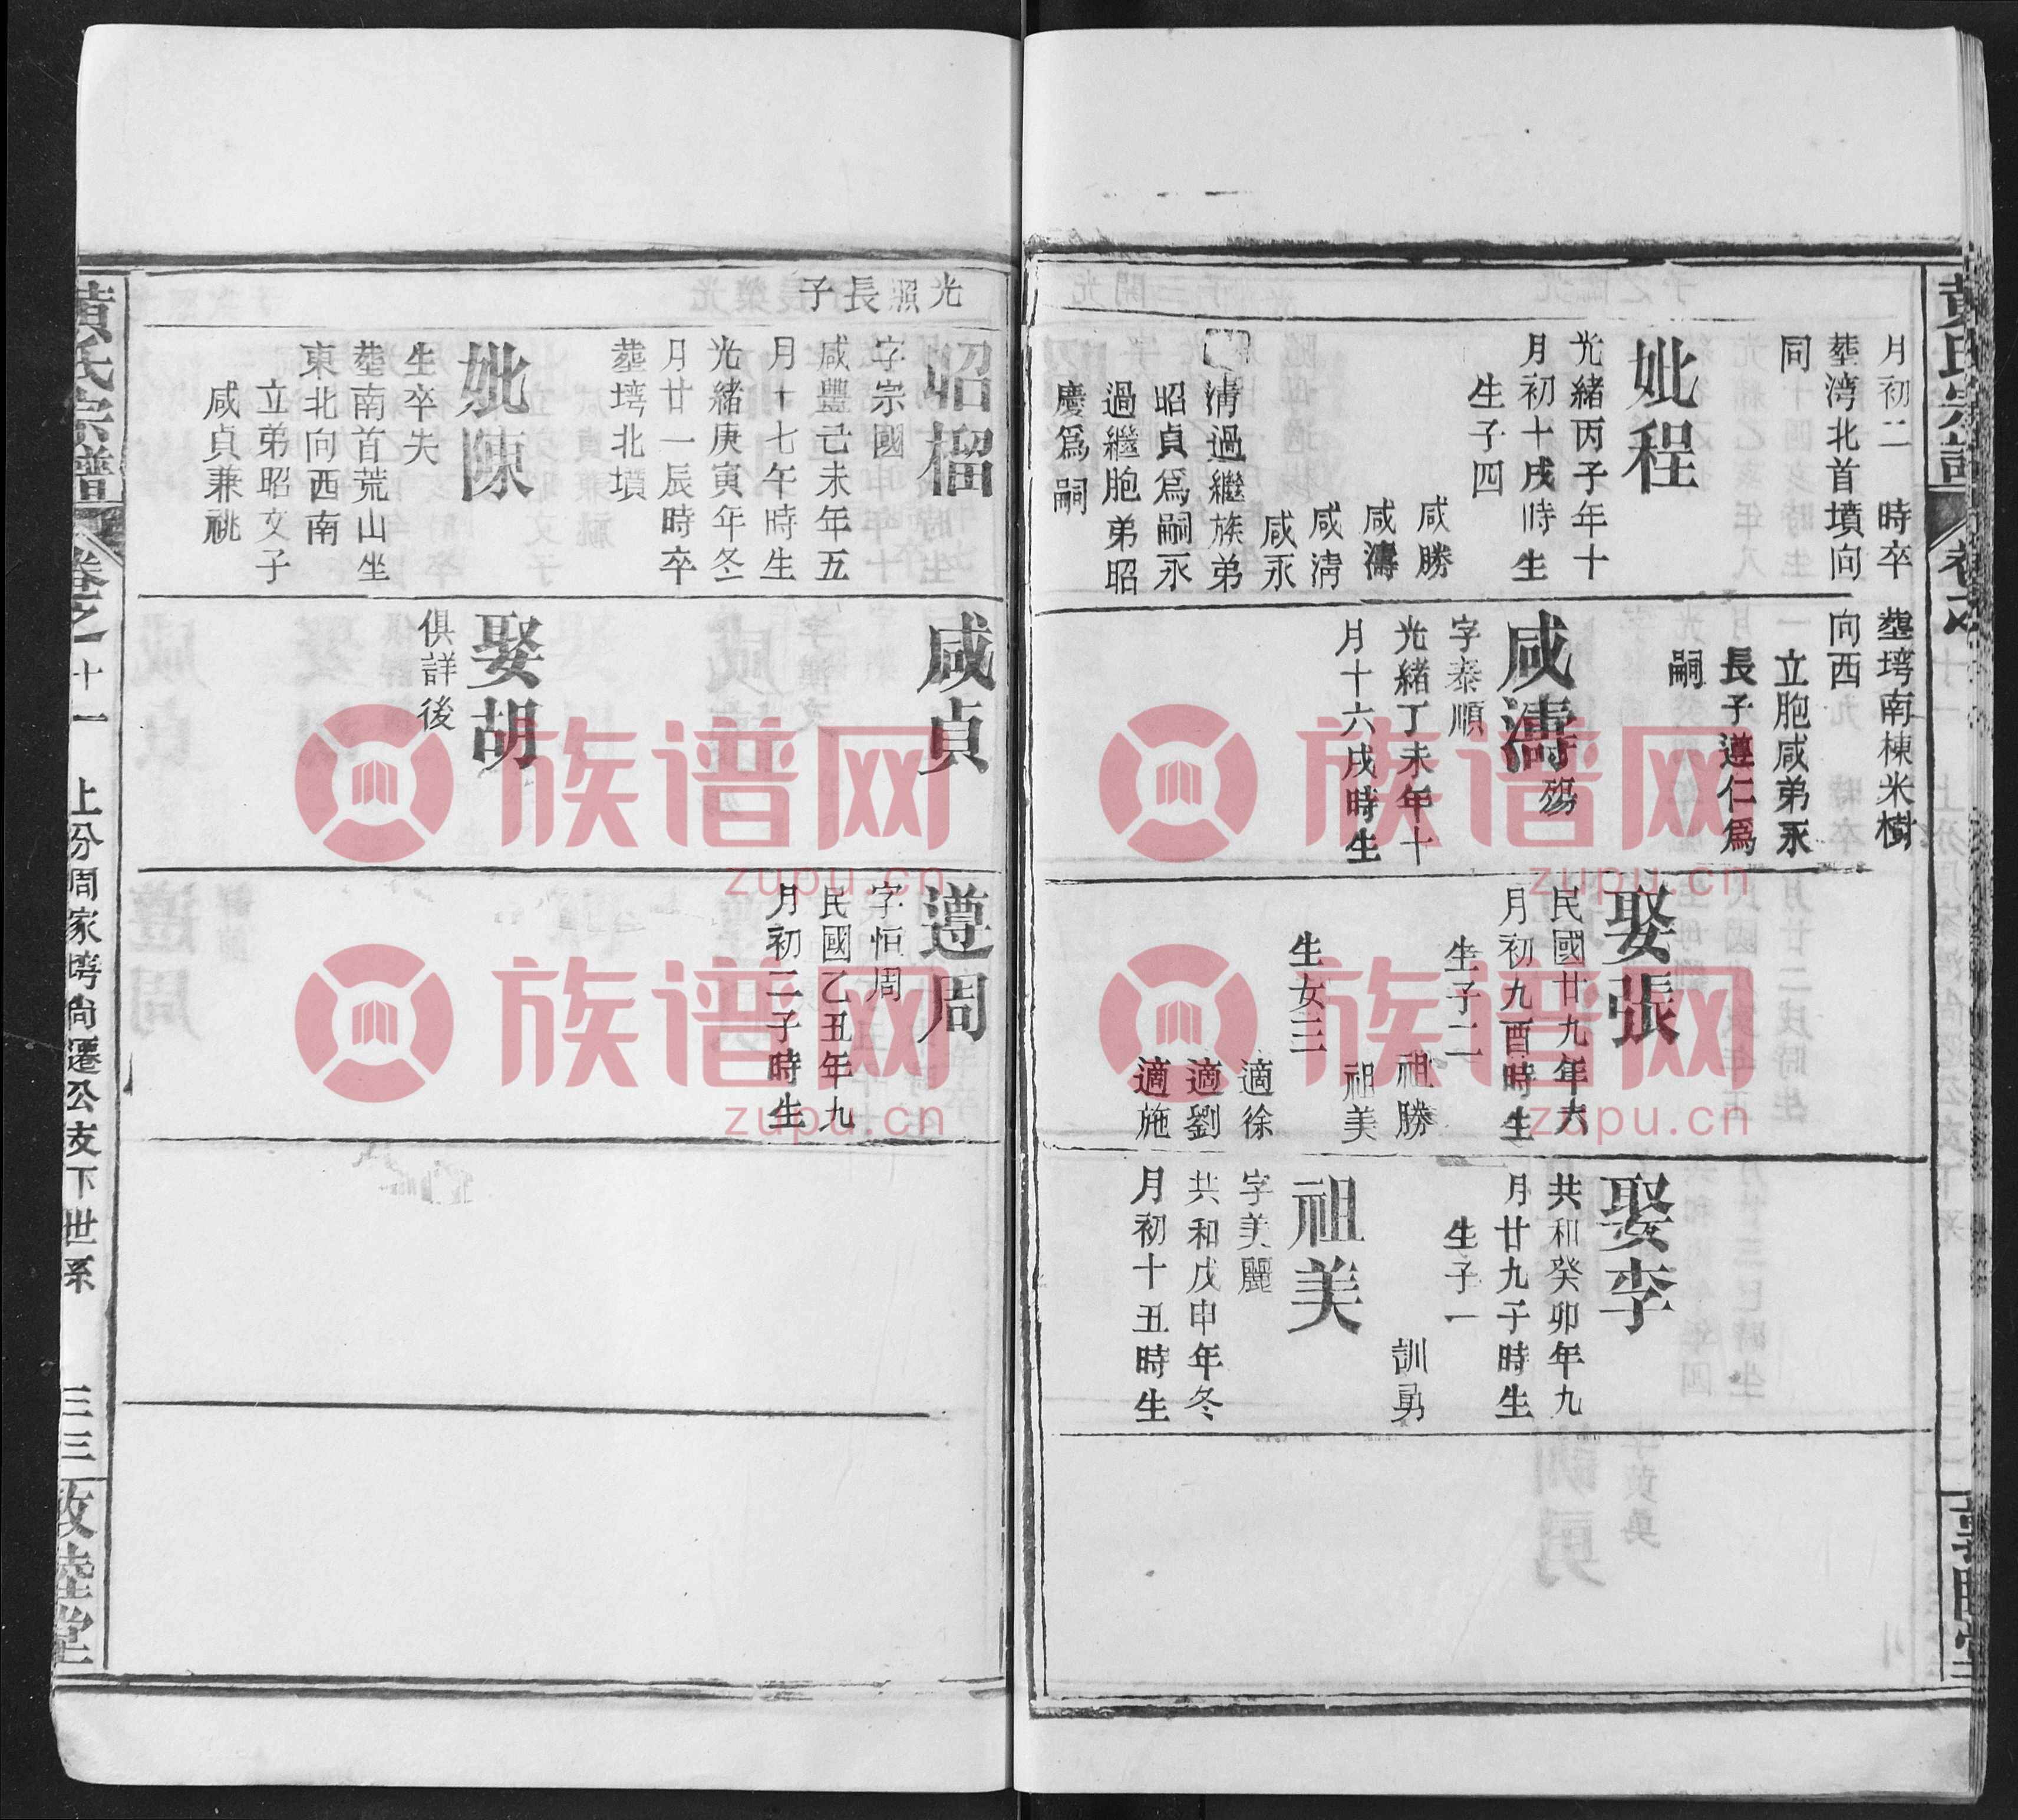 黃氏宗譜
月初二 時卒
塟湾北首墳向
同
妣程
光緒丙子年十
月初十戌時生
生子四
咸勝
咸濤
咸清
咸永
清過繼族弟
昭貞爲嗣永
過繼胞弟昭
慶爲嗣
塟塆南棟米樹
向西
立胞咸弟永
長子遵仁爲
嗣
咸濤殇
字泰順
光緒丁未年十
月十六戌時生
娶張
民國廿九年六
月初九酉時生
生子二
祖勝
祖美
生女三
適徐
適劉
適施
娶李
共和癸卯年九
月廿九子時生
生子一
訓勇
祖美
字美麗
共和戊申年冬
月初十丑時生
光照長子
昭榴
字宗國
咸豐己未年五
月十七午時生
光緒庚寅年冬
月廿一辰時卒
塟塆北墳
妣陳
生卒失
塟南首荒山坐
東北向西南
立弟昭文子
咸貞兼祧
咸貞
娶胡
俱詳後
遵周
字恒周
民國乙丑年九
月初二子時生
黃氏宗譜
卷之十一
上分周家塆尚遷公支下世系
三三
敦睦堂
族谱网
zupu.cn
族谱网
zupu.cn
族谱网
zupu.cn
族谱网
zupu.cn